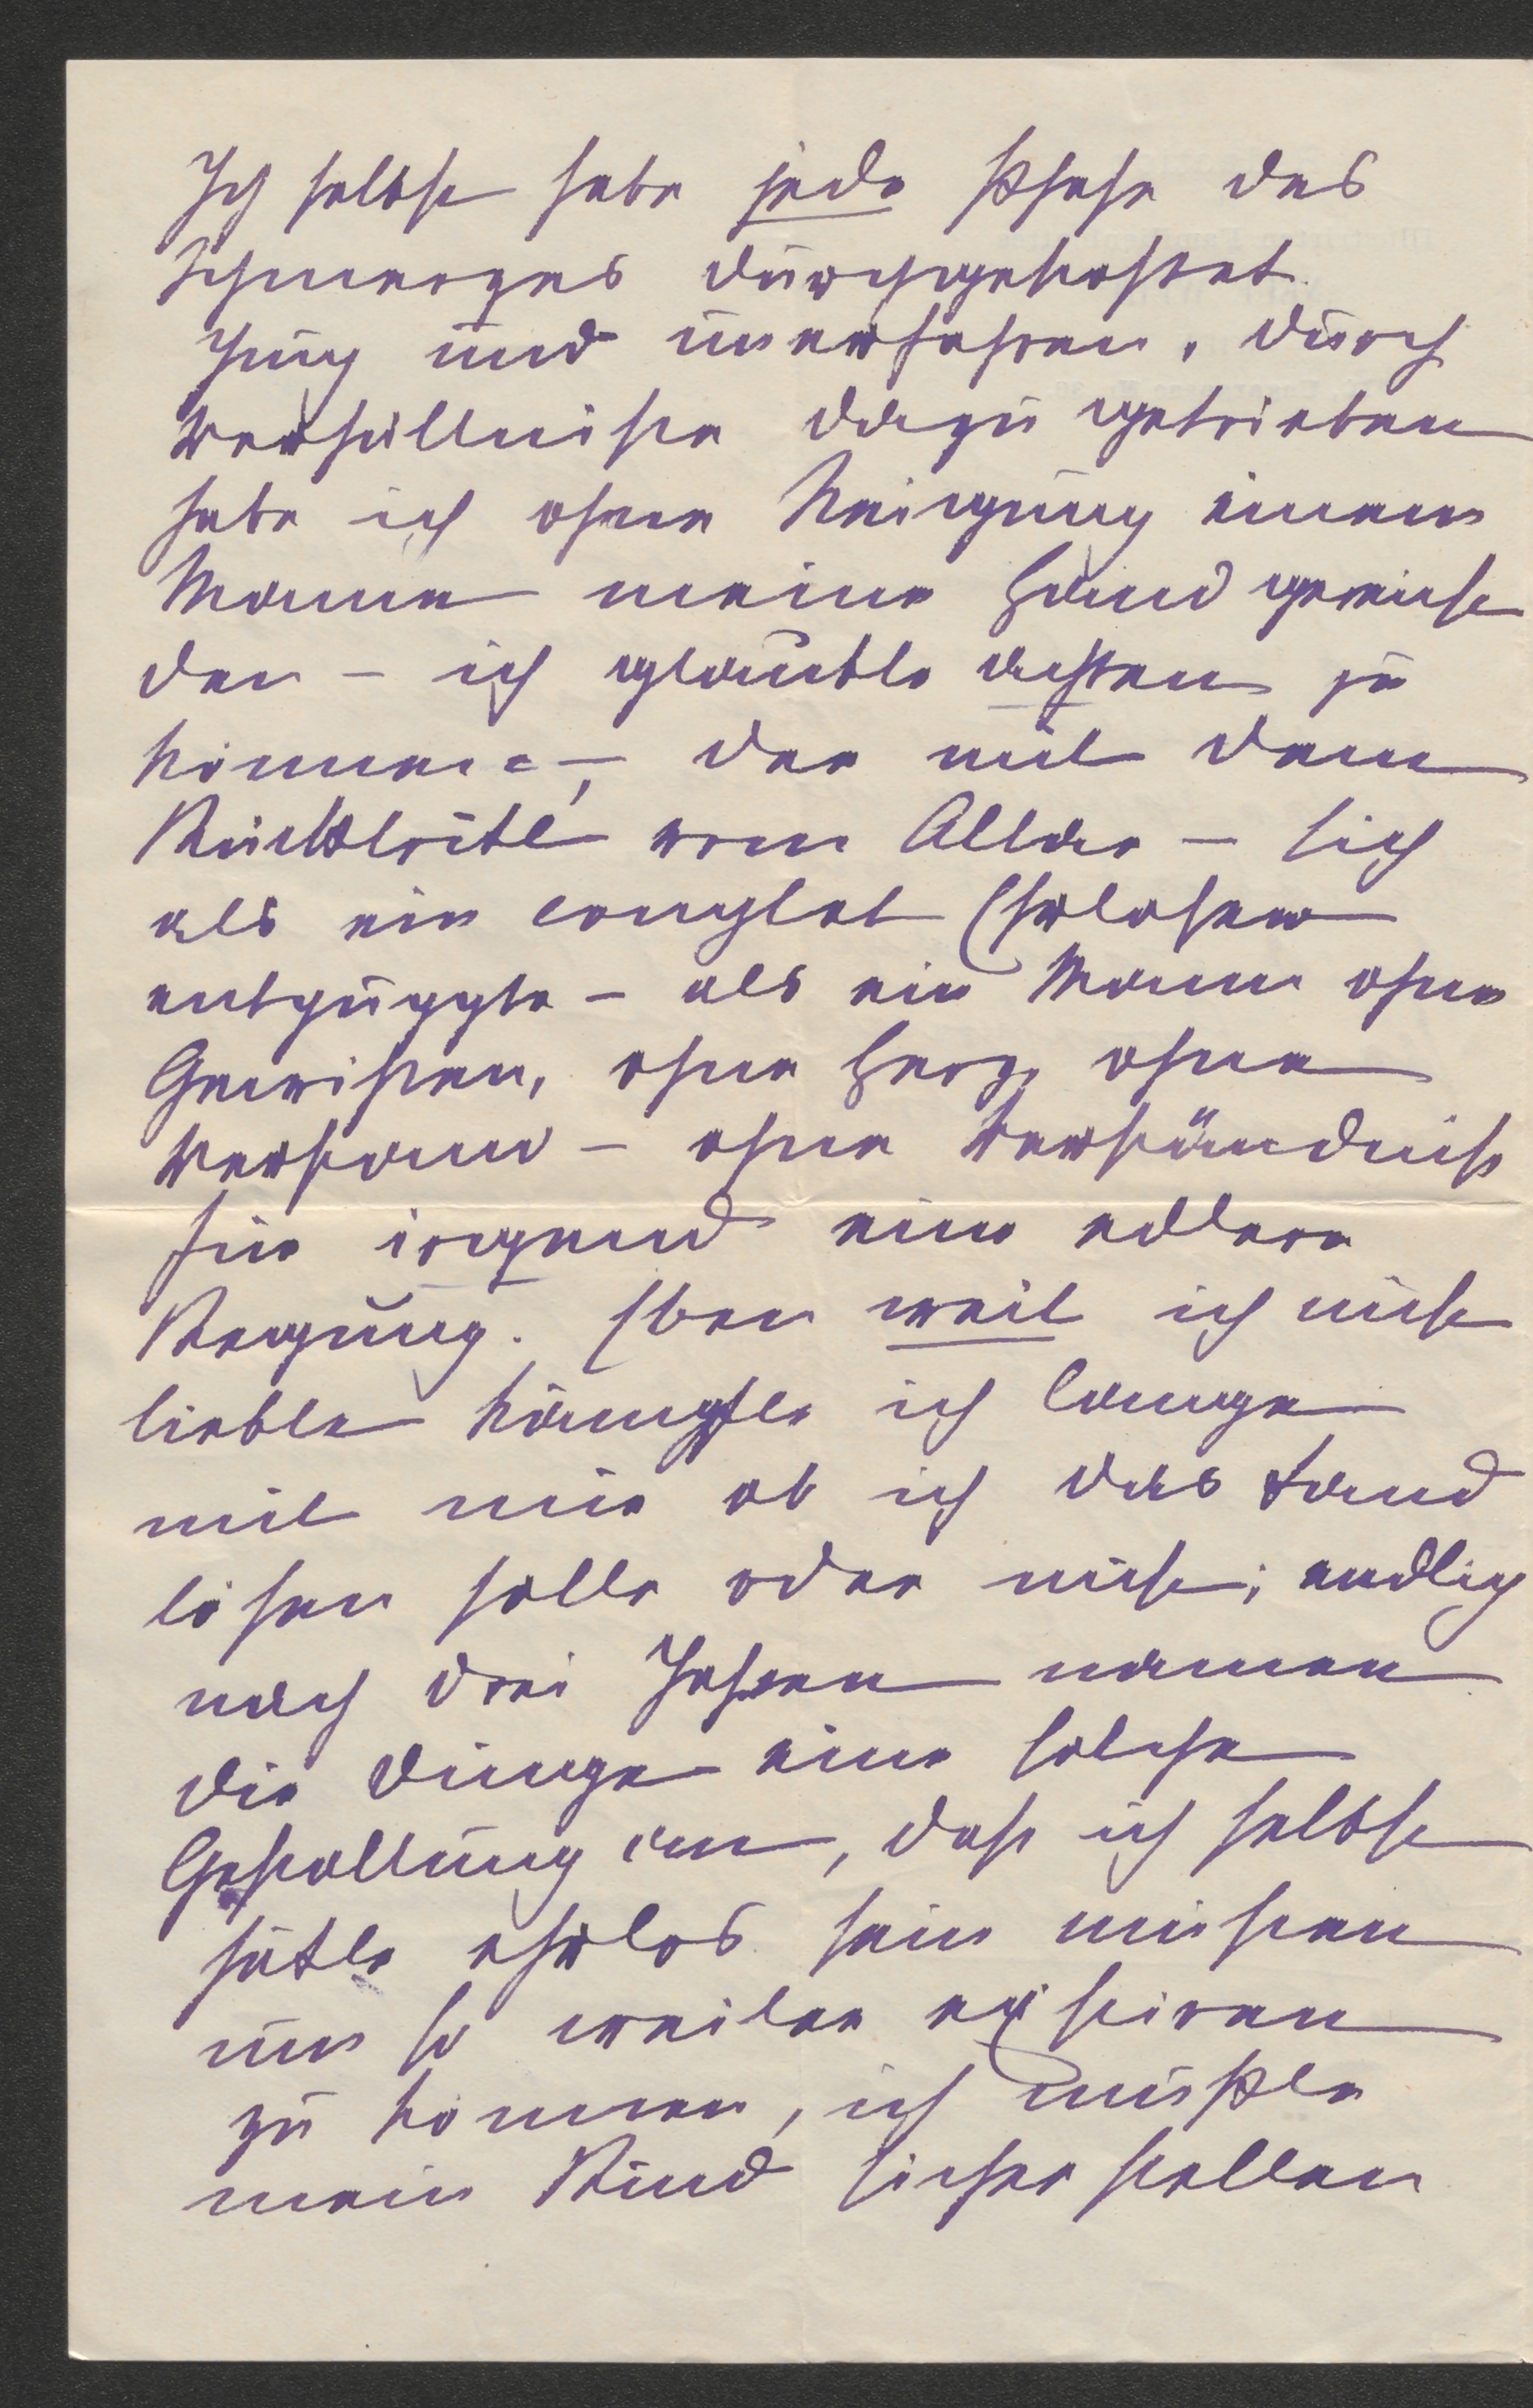 Ich selbst habe jede Phase des
Schmerzes durchgekostet.
Jung und unerfahren, durch
Verhältnisse dazu getrieben
habe ich ohne Neigung einem
Manne meine Hand gereicht
den – ich glaubte achten zu
können –, der mit dem
Rücktritt vom Altar – sich
als ein complet Ehrloser
entpuppte – als ein Mann ohne
Gewissen, ohne Herz, ohne
Verstand – ohne Verständniß
für irgend eine edlere
Regung. Eben weil ich nicht
liebte kämpfte ich lange
mit mir ob ich das Band
lösen solle oder nicht; endlich
nach drei Jahren namen
die Dinge eine solche
Gestaltung an, daß ich selbst
hätte ehrlos sein müssen
um so weiter existiren
zu können, ich mußte
mein Kind sicher stellen